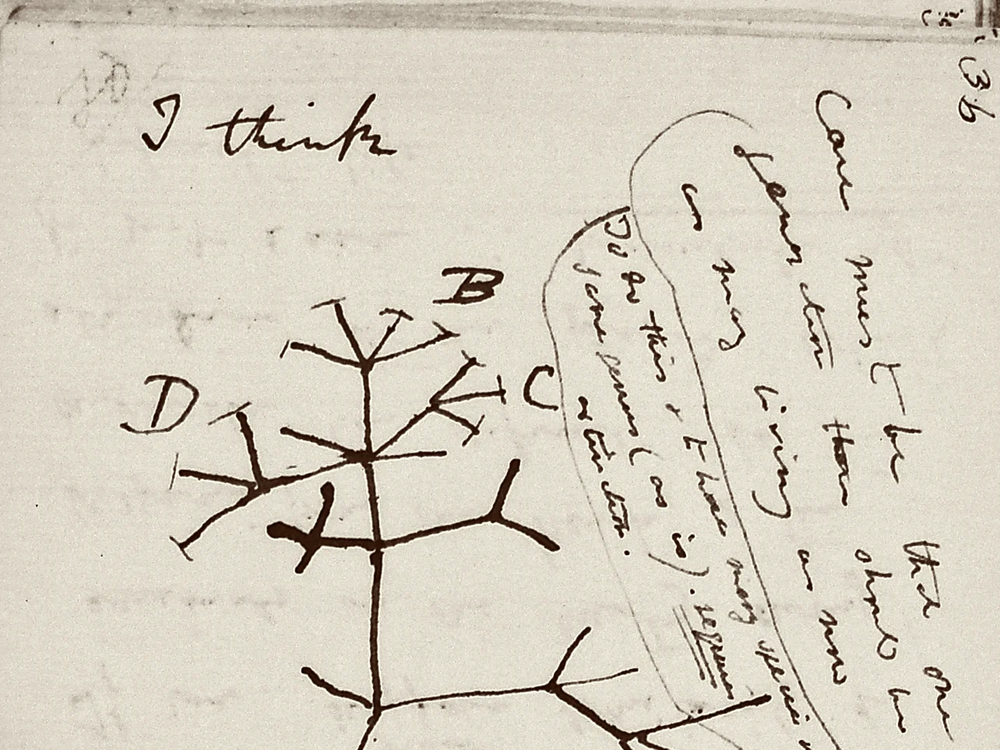 36
I think
Case must be that one
generation then should be
as many living as now
To do this & to have many species
same genus (as is). requires
extinction.
B
C
D